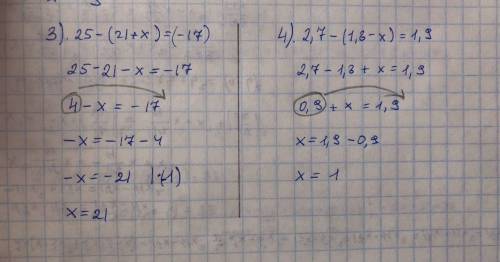 3). 25-(21+x)=(-17)
25-21-x=-17
4-x=-17
-x=-17-4
-x=-21 |(-1)
x=21
4). 2,7-(1,8-x)=1,9
2,7-1,8+x=1,9
0,9+x=1,9
x=1,9-0,9
x=1